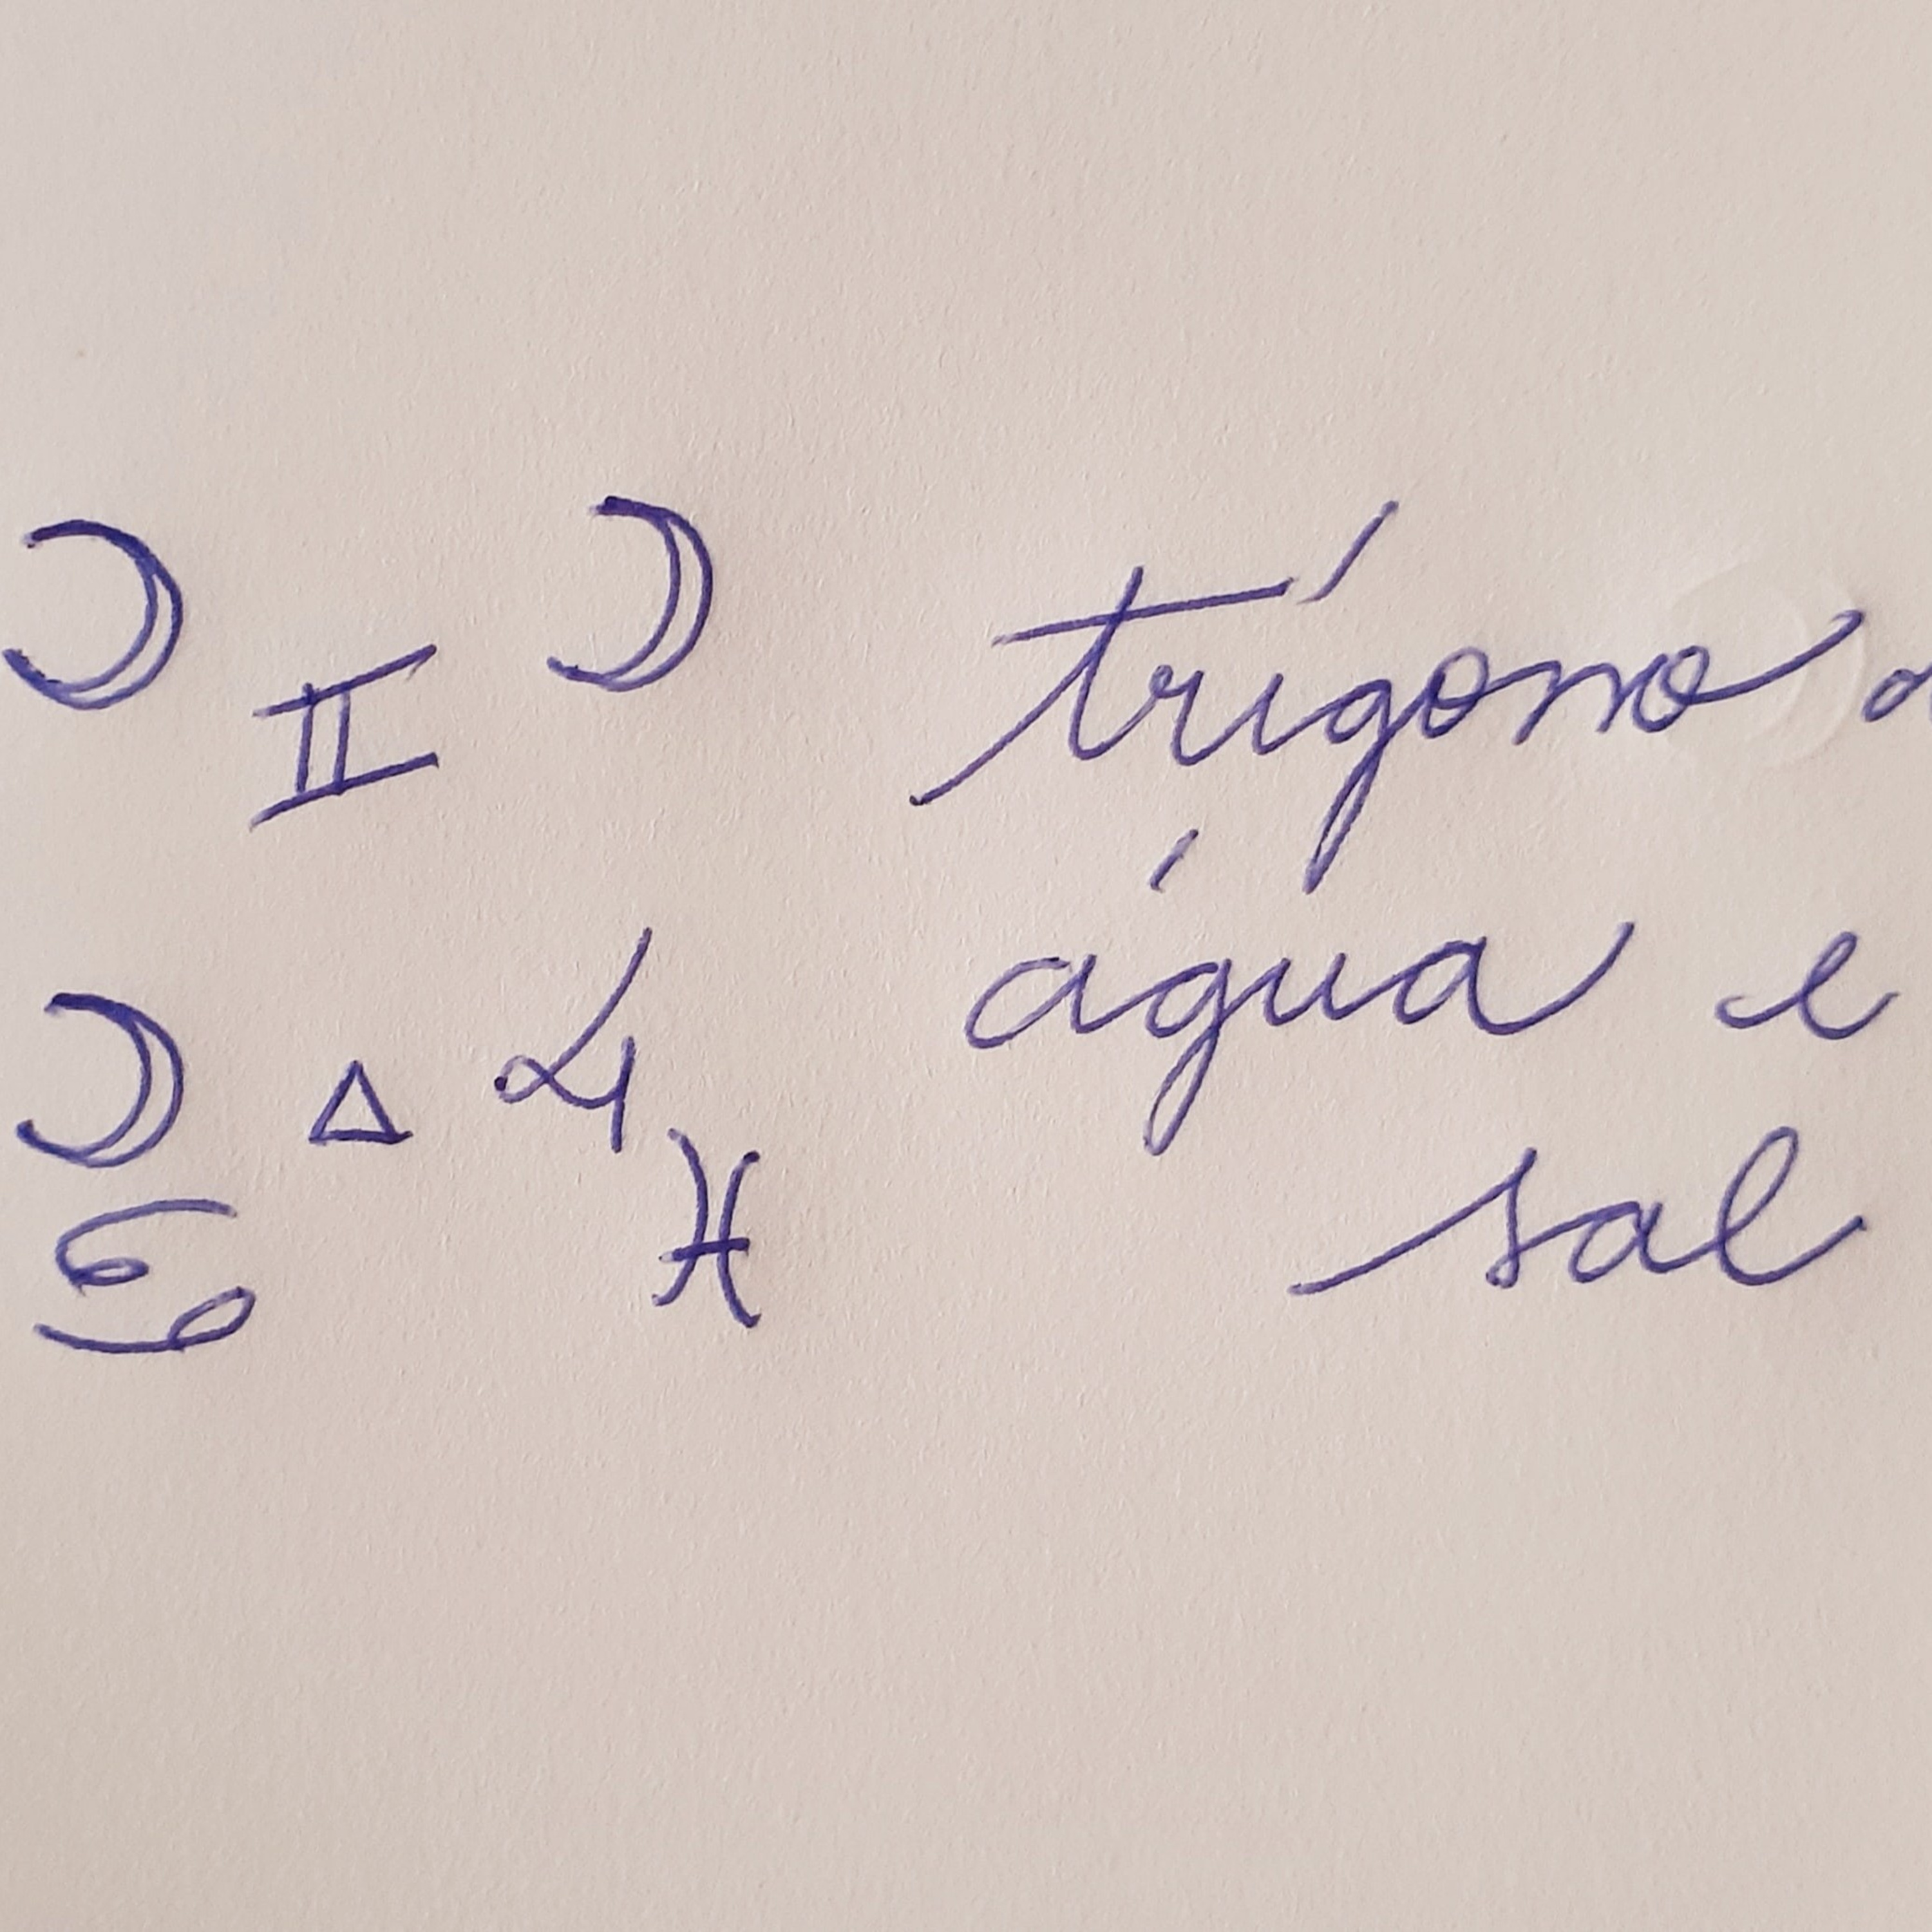 ☽ ♊ ☽ trígono d
☽ △ ♃ água e
♋ ♓ sal